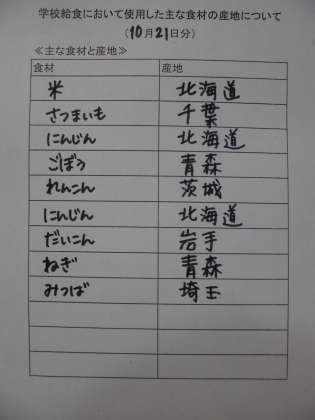 学校給食において使用した主な食材の産地について
（10月21日分）
≪主な食材と産地≫
食材 産地
米 北海道
さつまいも 千葉
にんじん 北海道
ごぼう 青森
れんこん 茨城
にんじん 北海道
だいこん 岩手
ねぎ 青森
みつば 埼玉